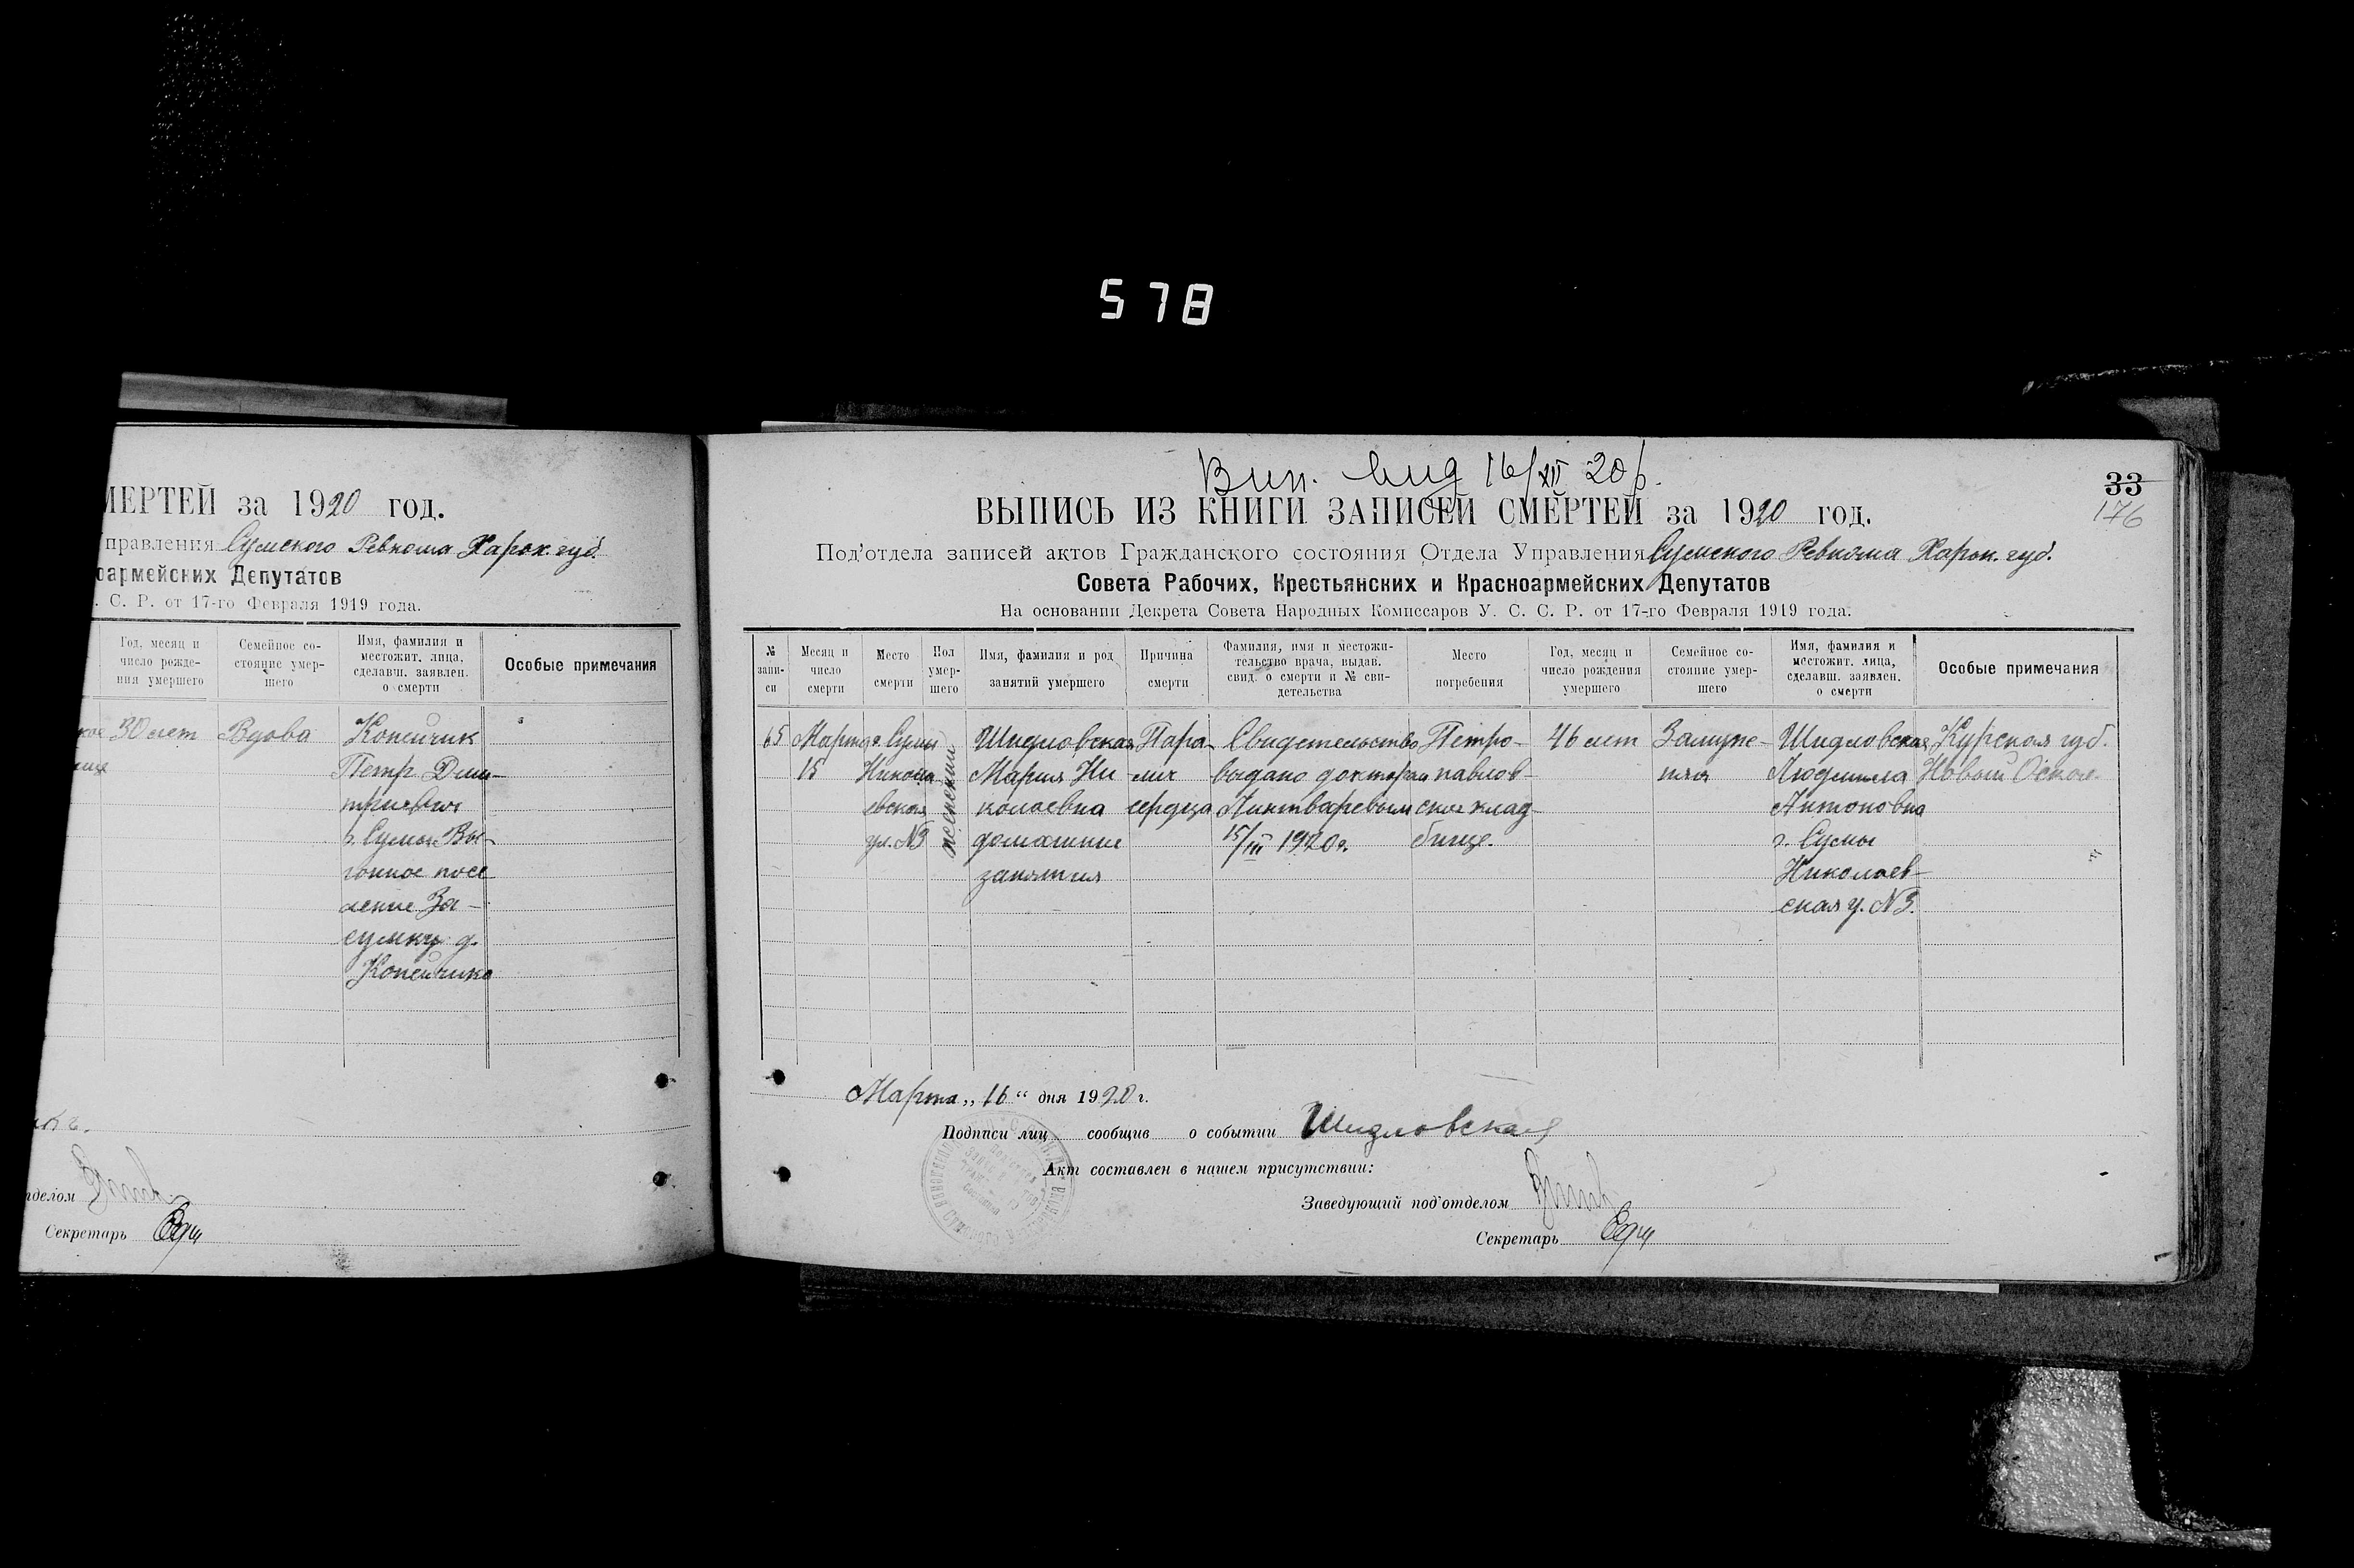 578
МЕРТЕЙ за 1920 год.
правления Сумского Ревкома Харьк. губ.
оармейских Депутатов
. С. Р. от 17-го Февраля 1919 года.
Год, месяц и число рожде-ния умершего
Семейное со-стояние умер-шего
Имя, фамилия и местожит. лица, сделавш. заявлен. о смерти
Особые примечания
30 лет
Вдова
Копейчик
Петр Дми-
триевич
г. Сумы Вы-
гонное посе
ление За-
сумку д.
Копейчика
тделом
Секретарь
Вип. вид 16/XII 20 р.
33
176
ВЫПИСЬ ИЗ КНИГИ ЗАПИСЕЙ СМЕРТЕЙ за 1920 год.
Под'отдела записей актов Гражданского состояния Отдела Управления Сумского Ревкома Харьк. губ.
Совета Рабочих, Крестьянских и Красноармейских Депутатов
На основании Декрета Совета Народных Комиссаров У. С. С. Р. от 17-го Февраля 1919 года.
№ запи-си
Месяц и число смерти
Место смерти
Пол умер-шего
Имя, фамилия и род занятий умершего
Причина смерти
Фамилия, имя и местожи-тельство врача, выдав. свид. о смерти и № сви-детельства
Место погребения
Год, месяц и число рождения умершего
Семейное со-стояние умер-шего
Имя, фамилия и местожит. лица, сделавш. заявлен. о смерти
Особые примечания
65
Марта
15
г. Сумы
Никола
евская
ул. №3
женский
Шидловская
Мария Ни
колаевна
домашние
занятия
Пара-
лич
сердца
Свидетельство
выдано доктором
Линтваревым
15/III 1920 г.
Петро-
павлов-
ское клад-
бище.
46 лет
Замуж-
няя
Шидловская
Людмила
Антоновна
г. Сумы
Николаев-
ская у. №3.
Курская губ.
Новый Оскол.
Марта „16“ дня 1920 г.
Подписи лиц сообщив о событии Шидловская
Акт составлен в нашем присутствии:
Заведующий под'отделом
Секретарь